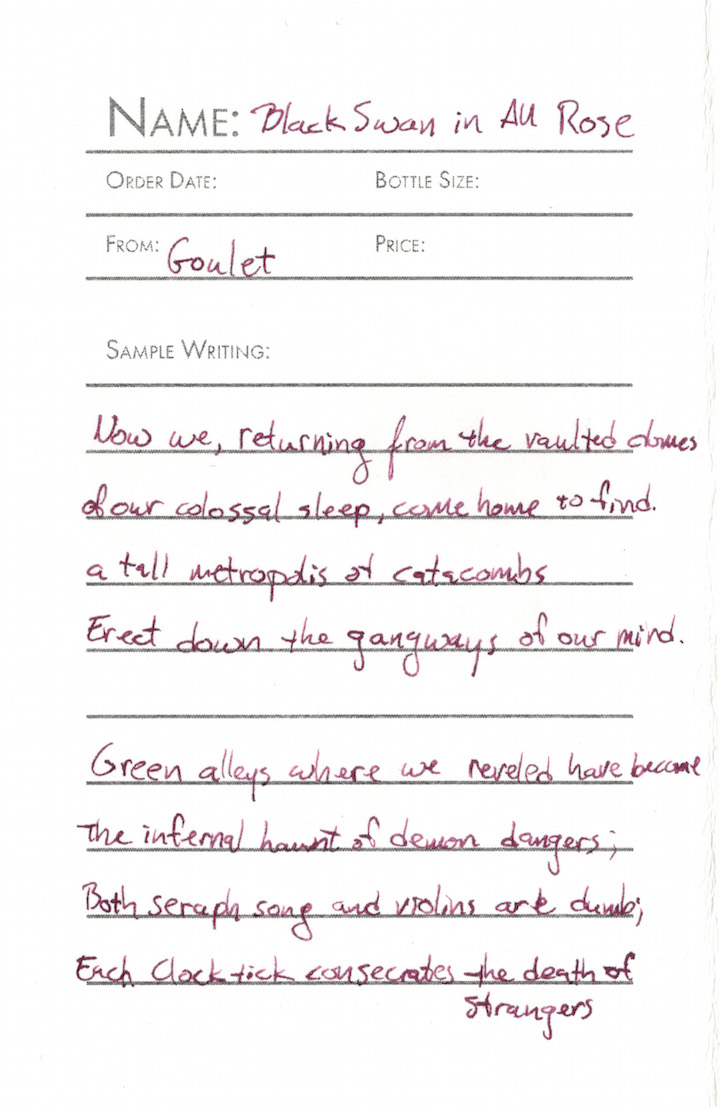 NAME: Black Swan in Au Rose
ORDER DATE: BOTTLE SIZE:
FROM: Goulet PRICE:
SAMPLE WRITING:
Now we, returning from the vaulted domes
of our colossal sleep, come home to find.
a tall metropolis of catacombs
Erect down the gangways of our mind.
Green alleys where we reveled have become
The infernal haunt of demon dangers;
Both seraph song and violins are dumb;
Each Clock tick consecrates the death of
strangers